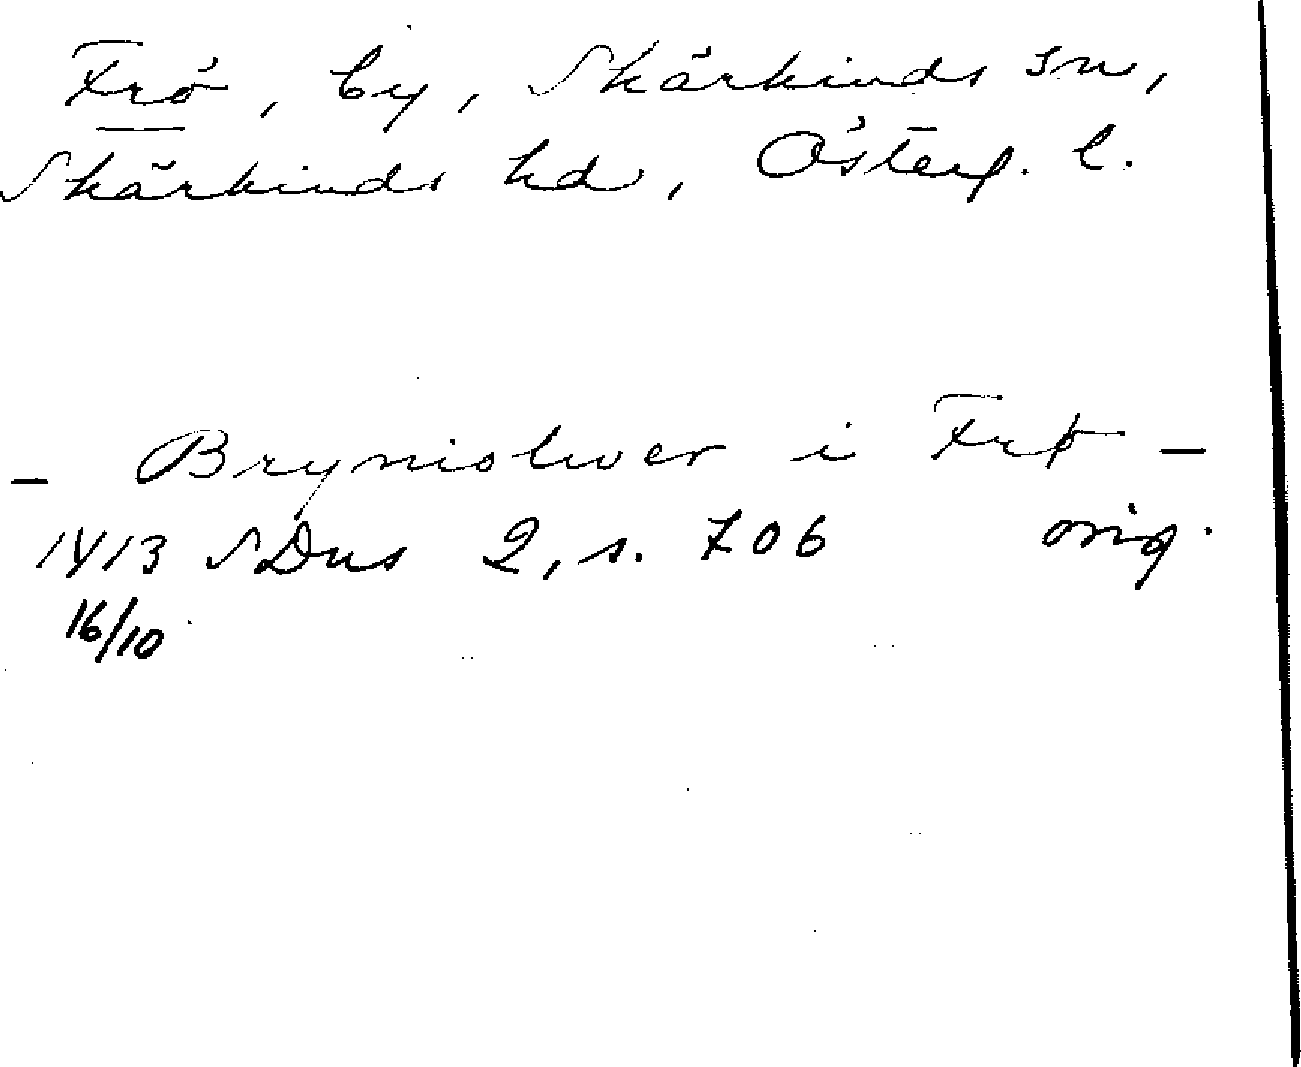 Frö, by, Skärkinds sn,
Skärkinds hd, Österg. l.
– Bryniolwer i Frø –
1413 SDns 2, s. 706 orig.
16/10